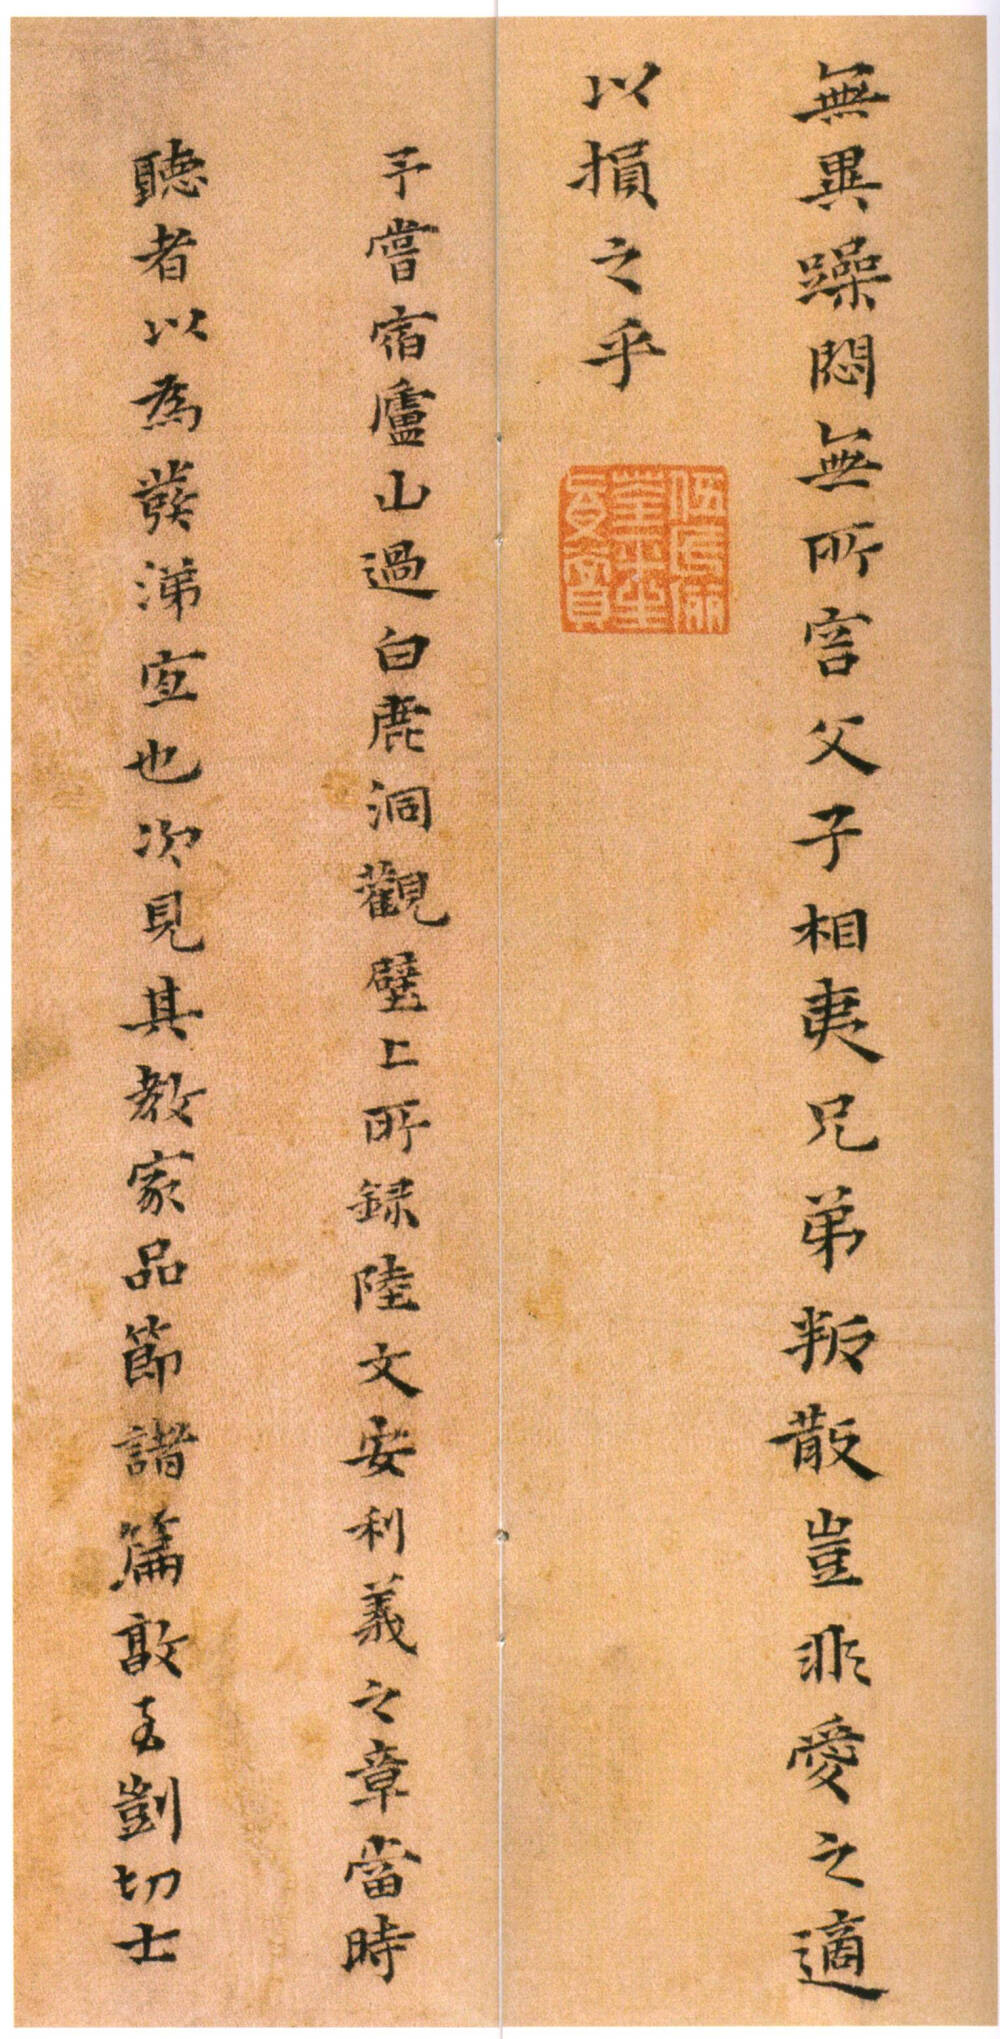 無異躁悶無所容父子相夷兄弟叛散豈非愛之適
以損之乎
予嘗宿廬山過白鹿洞觀壁上所録陸文安利義之章當時
聽者以為發涕宜也次見其教家品節諸篇敦麦剴切士